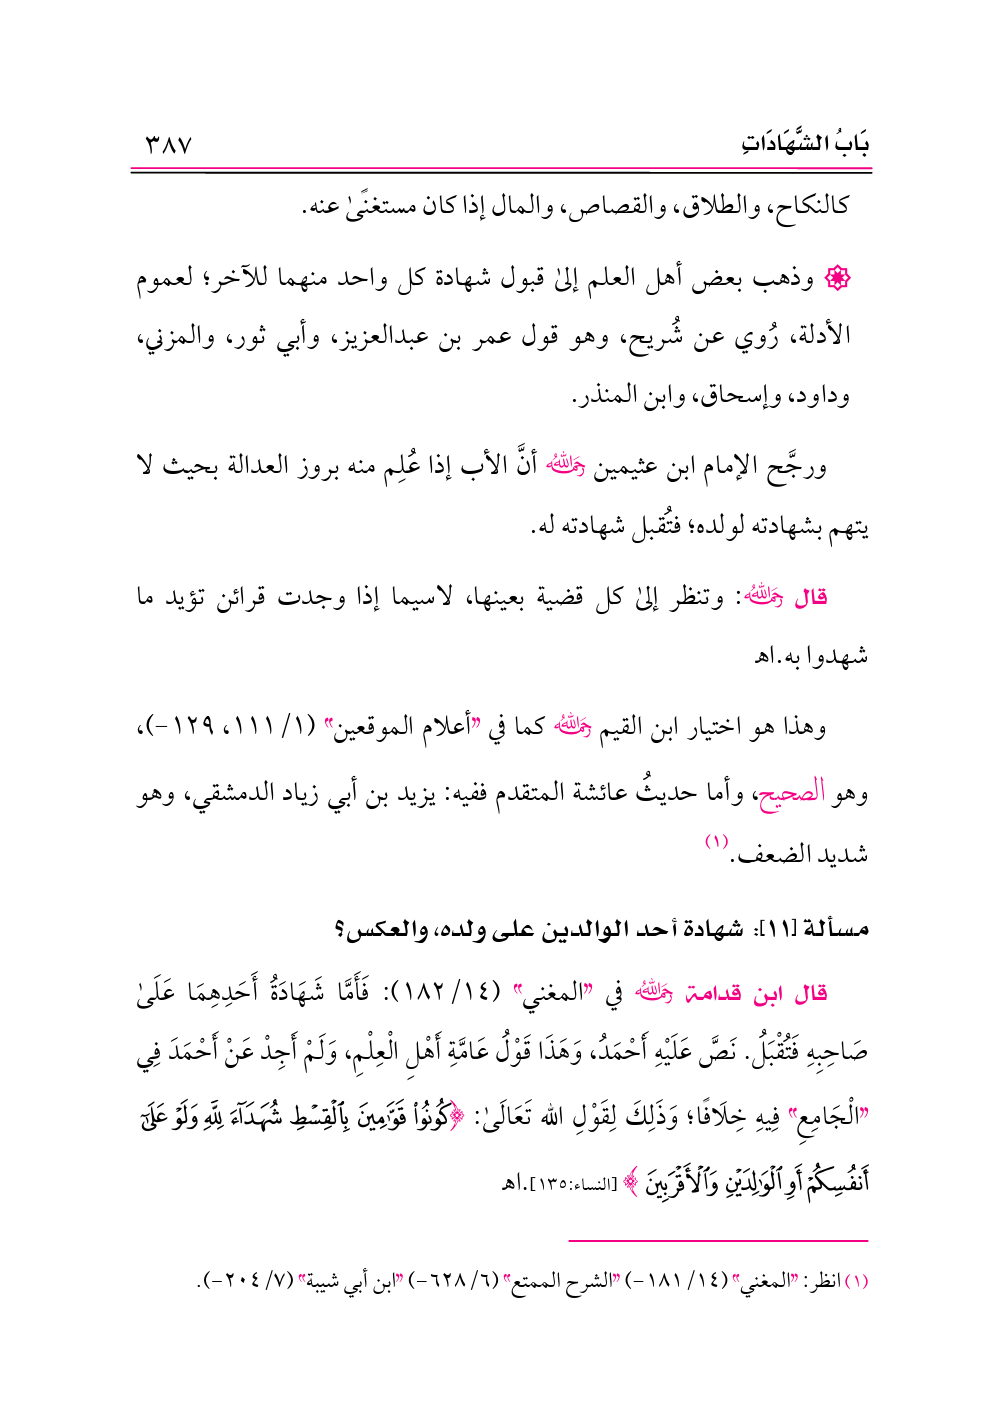 بَابُ الشَّهَادَاتِ ٣٨٧
كالنكاح، والطلاق، والقصاص، والمال إذا كان مستغنًى عنه.
وذهب بعض أهل العلم إلىٰ قبول شهادة كل واحد منهما للآخر؛ لعموم
الأدلة، رُوي عن شُريح، وهو قول عمر بن عبدالعزيز، وأبي ثور، والمزني،
وداود، وإسحاق، وابن المنذر.
ورجَّح الإمام ابن عثيمين رحمه الله أنَّ الأب إذا عُلِم منه بروز العدالة بحيث لا
يتهم بشهادته لولده؛ فتُقبل شهادته له.
قال رحمه الله: وتنظر إلىٰ كل قضية بعينها، لاسيما إذا وجدت قرائن تؤيد ما
شهدوا به.اهـ
وهذا هو اختيار ابن القيم رحمه الله كما في "أعلام الموقعين" (١/ ١١١، ١٢٩-)،
وهو الصحيح، وأما حديثُ عائشة المتقدم ففيه: يزيد بن أبي زياد الدمشقي، وهو
شديد الضعف.(١)
مسألة [١١]: شهادة أحد الوالدين على ولده، والعكس؟
قال ابن قدامة رحمه الله في "المغني" (١٤/ ١٨٢): فَأَمَّا شَهَادَةُ أَحَدِهِمَا عَلَىٰ
صَاحِبِهِ فَتُقْبَلُ. نَصَّ عَلَيْهِ أَحْمَدُ، وَهَذَا قَوْلُ عَامَّةِ أَهْلِ الْعِلْمِ، وَلَمْ أَجِدْ عَنْ أَحْمَدَ فِي
"الْجَامِعِ" فِيهِ خِلَافًا؛ وَذَلِكَ لِقَوْلِ الله تَعَالَىٰ: ﴿كُونُوا۟ قَوَّٰمِينَ بِٱلْقِسْطِ شُهَدَآءَ لِلَّهِ وَلَوْ عَلَىٰٓ
أَنفُسِكُمْ أَوِ ٱلْوَٰلِدَيْنِ وَٱلْأَقْرَبِينَ﴾ [النساء:١٣٥].اهـ
(١) انظر: "المغني" (١٤/ ١٨١-) "الشرح الممتع" (٦/ ٦٢٨-) "ابن أبي شيبة" (٧/ ٢٠٤-).